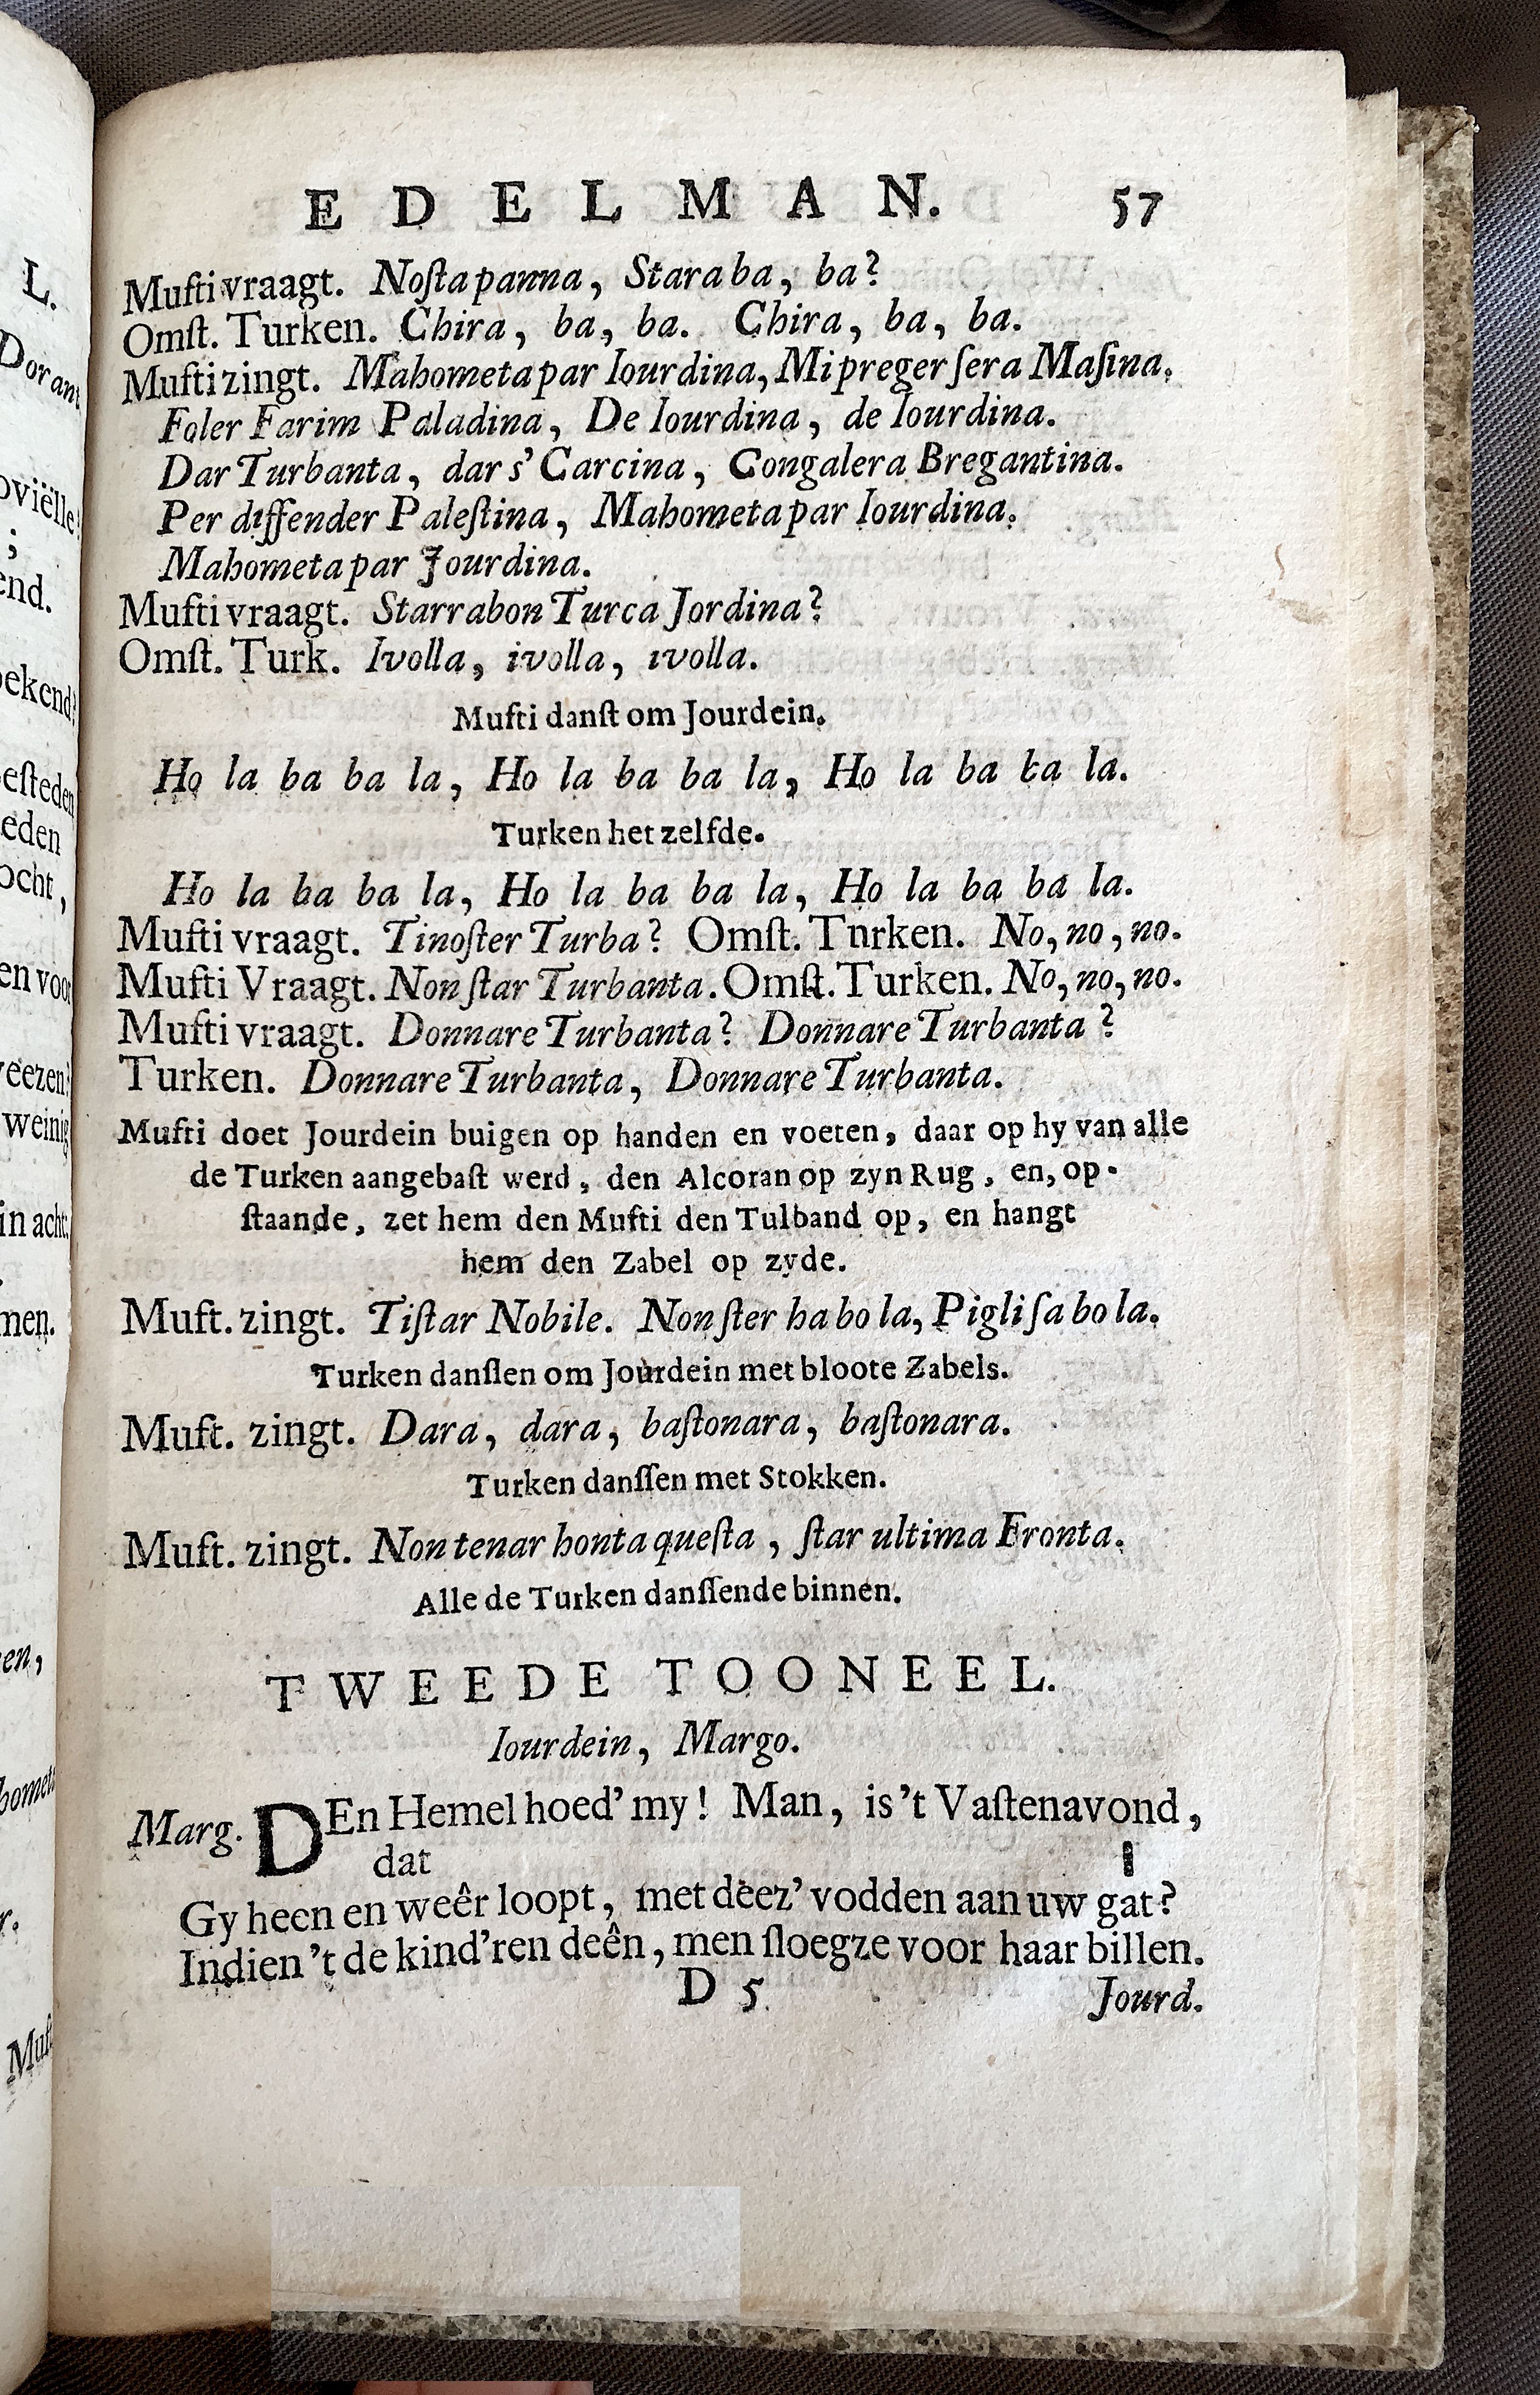 EDELMAN. 57
Mufti vraagt. Noſta panna, Stara ba, ba?
Omſt. Turken. Chira, ba, ba. Chira, ba, ba.
Mufti zingt. Mahometa par Iourdina, Mi preger ſera Maſina.
Foler Farim Paladina, De Iourdina, de Iourdina.
Dar Turbanta, dar s' Carcina, Congalera Bregantina.
Per diffender Paleſtina, Mahometa par Iourdina.
Mahometa par Jourdina.
Mufti vraagt. Starrabon Turca Jordina?
Omſt. Turk. Ivolla, ivolla, ivolla.
Mufti danſt om Jourdein.
Ho la ba ba la, Ho la ba ba la, Ho la ba ba la.
Turken het zelfde.
Ho la ba ba la, Ho la ba ba la, Ho la ba ba la.
Mufti vraagt. Tinoſter Turba? Omſt. Tnrken. No, no, no.
Mufti Vraagt. Non ſtar Turbanta. Omſt. Turken. No, no, no.
Mufti vraagt. Donnare Turbanta? Donnare Turbanta?
Turken. Donnare Turbanta, Donnare Turbanta.
Mufti doet Jourdein buigen op handen en voeten, daar op hy van alle
de Turken aangebaſt werd, den Alcoran op zyn Rug, en, op-
ſtaande, zet hem den Mufti den Tulband op, en hangt
hem den Zabel op zyde.
Muft. zingt. Tiſtar Nobile. Non ſter ha bo la, Pigli ſa bo la.
Turken danſſen om Jourdein met bloote Zabels.
Muft. zingt. Dara, dara, baſtonara, baſtonara.
Turken danſſen met Stokken.
Muft. zingt. Non tenar honta queſta, ſtar ultima Fronta.
Alle de Turken danſſende binnen.
TWEEDE TOONEEL.
Iourdein, Margo.
Marg. DEn Hemel hoed' my! Man, is 't Vaſtenavond,
dat
Gy heen en weêr loopt, met deez' vodden aan uw gat?
Indien 't de kind'ren deên, men ſloegze voor haar billen.
D 5 Jourd.